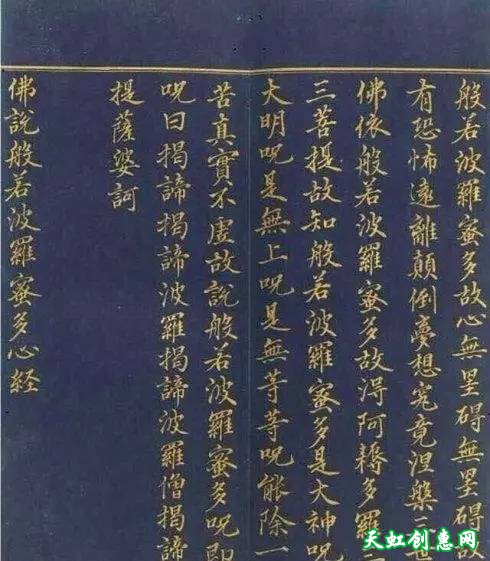 般若波羅蜜多故心無罣碍無罣碍故
有恐怖遠離顛倒夢想究竟涅槃三世
佛依般若波羅蜜多故淂阿耨多羅三
三菩提故知般若波羅蜜多是大神呪
大明呪是無上呪是無等等呪能除一
苦真實不虛故說般若波羅蜜多呪即
呪曰揭諦揭諦波羅揭諦波羅僧揭諦
提薩婆訶
佛說般若波羅蜜多心経
天虹创惠网